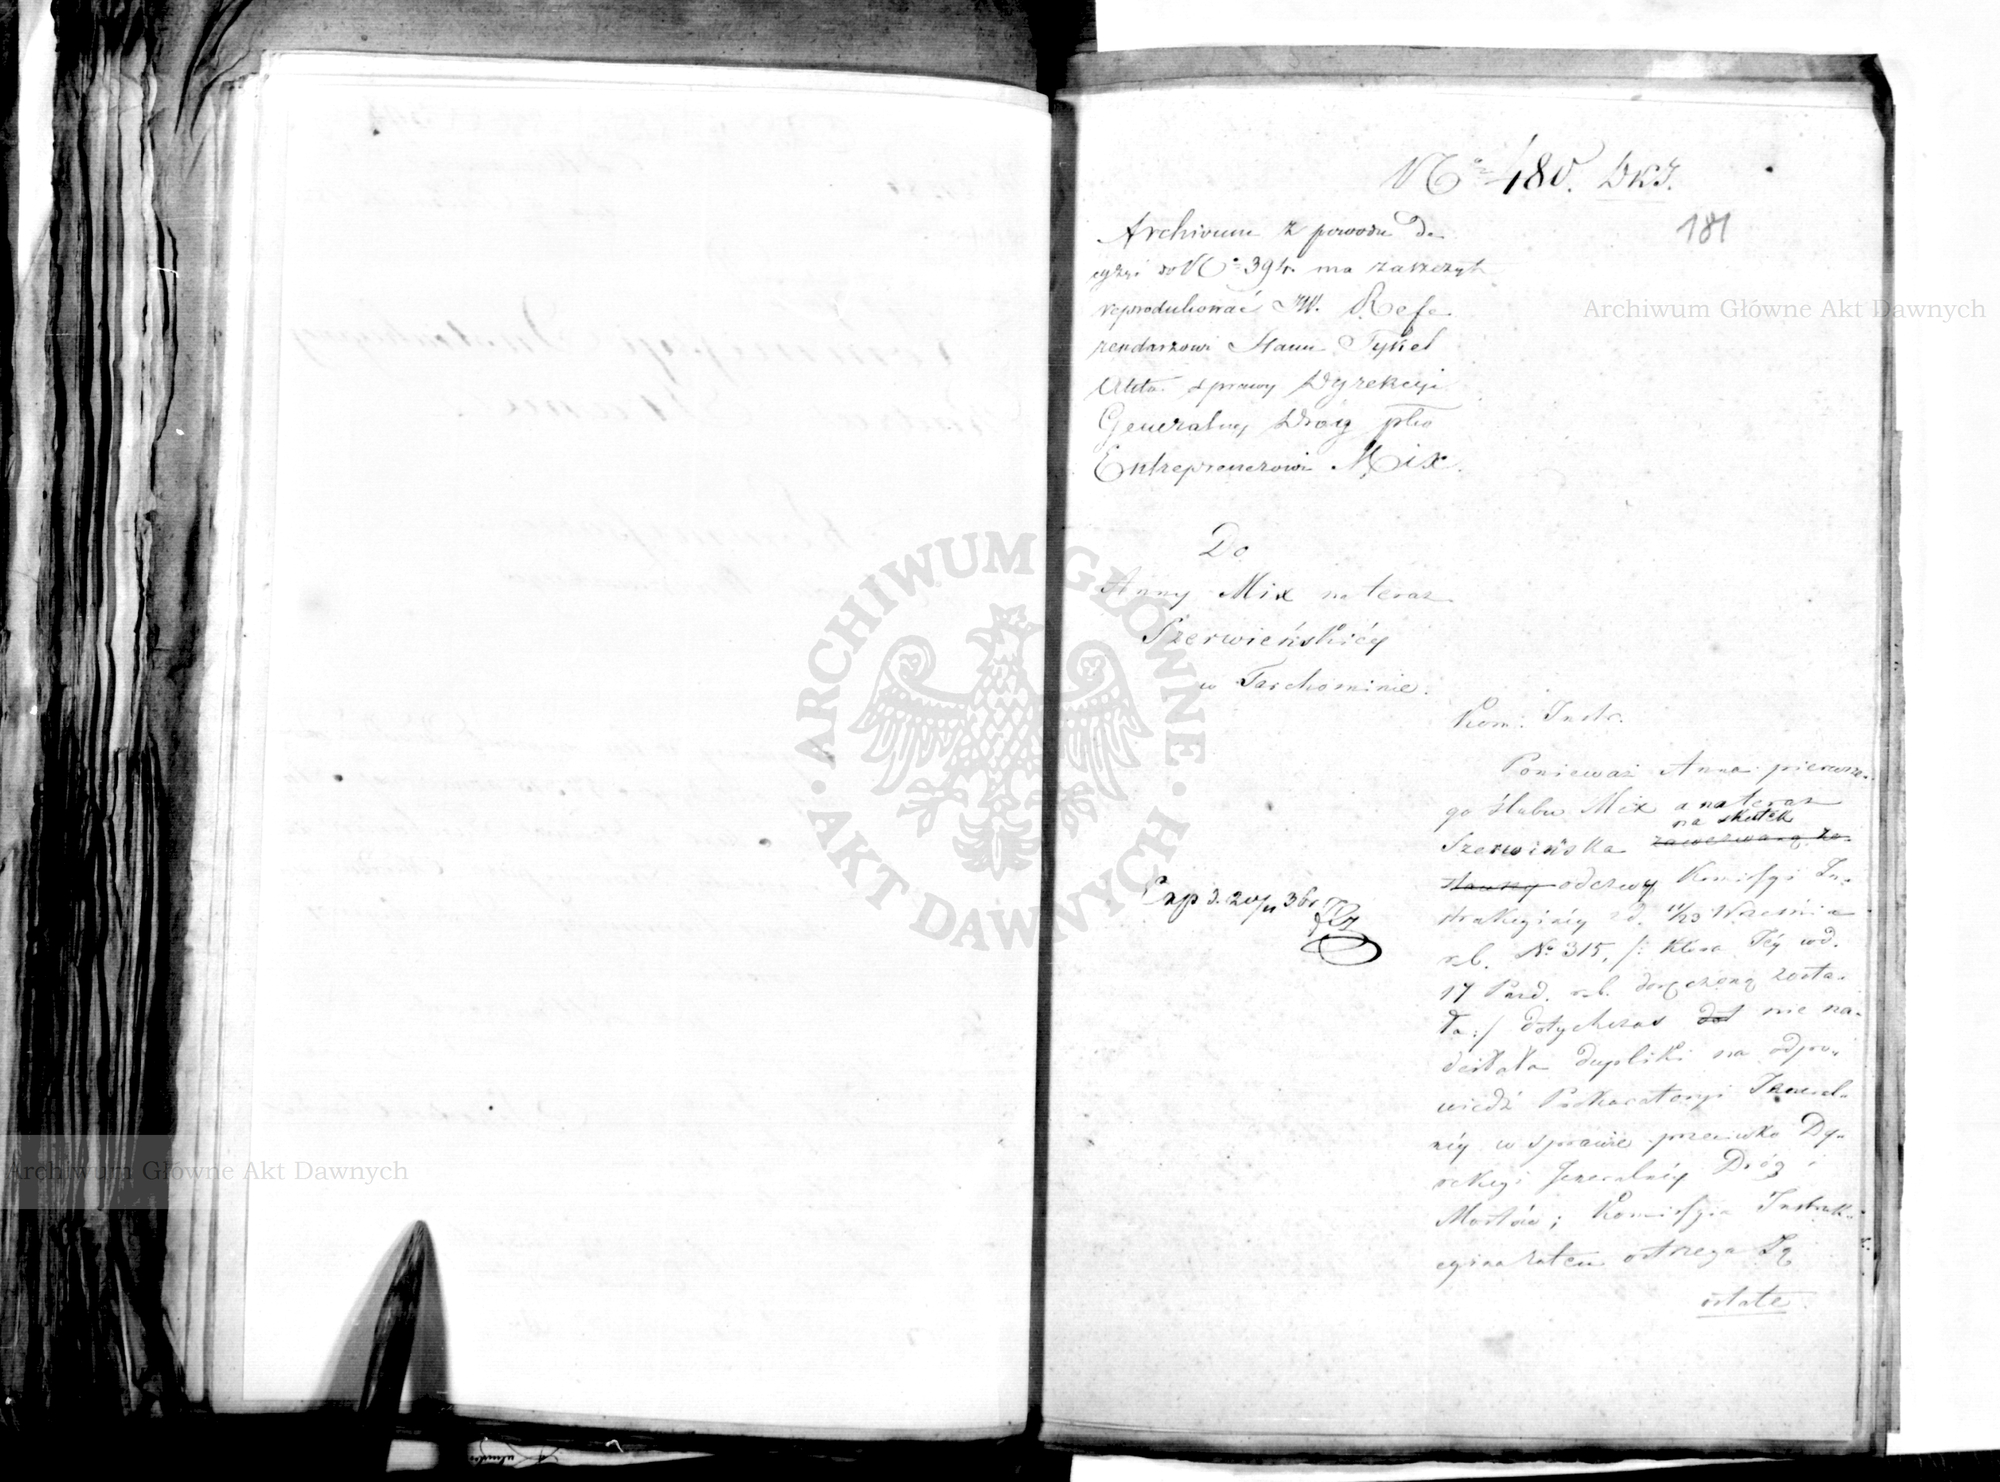 No 480. DKJ.
181
Archiwum z powodu de
cyzyi do No 394. ma zaszczyt
reprodukować JW. Refe
rendarzowi Stanu Tykel
Akta sprawy Dyrekcyi
Generalney Dróg ptko
Entreprenerowi Mix.
Do
Anny Mix na teraz
Szerwieńskiéy
w Tarchominie.
Kom: Instr.
Ponieważ Anna pierwsze-
go ślubu Mix a na teraz
na skutek
Szerwińska zawezwaną zo-
stawszy odezwy Komissyi In-
strukcyinéy z d. 11/23 Września
r.b. No 315, /: która Jéy w d.
17 Pazd. r.b. doręczoną zosta-
ła :/ dotychczas dot nie na-
desłała dupliki na odpo-
wiedź Prokuratoryi Jeneral-
néy w sprawie przeciwko Dy-
rekcyi Jeneralnéy Dróg i
Mostów; Komissyia Instruk-
cyina zatem ostrzega Ją
ostate
Exp d. 20/11 3br
Archiwum Główne Akt Dawnych
Archiwum Główne Akt Dawnych
ARCHIWUM GŁÓWNE
AKT DAWNYCH